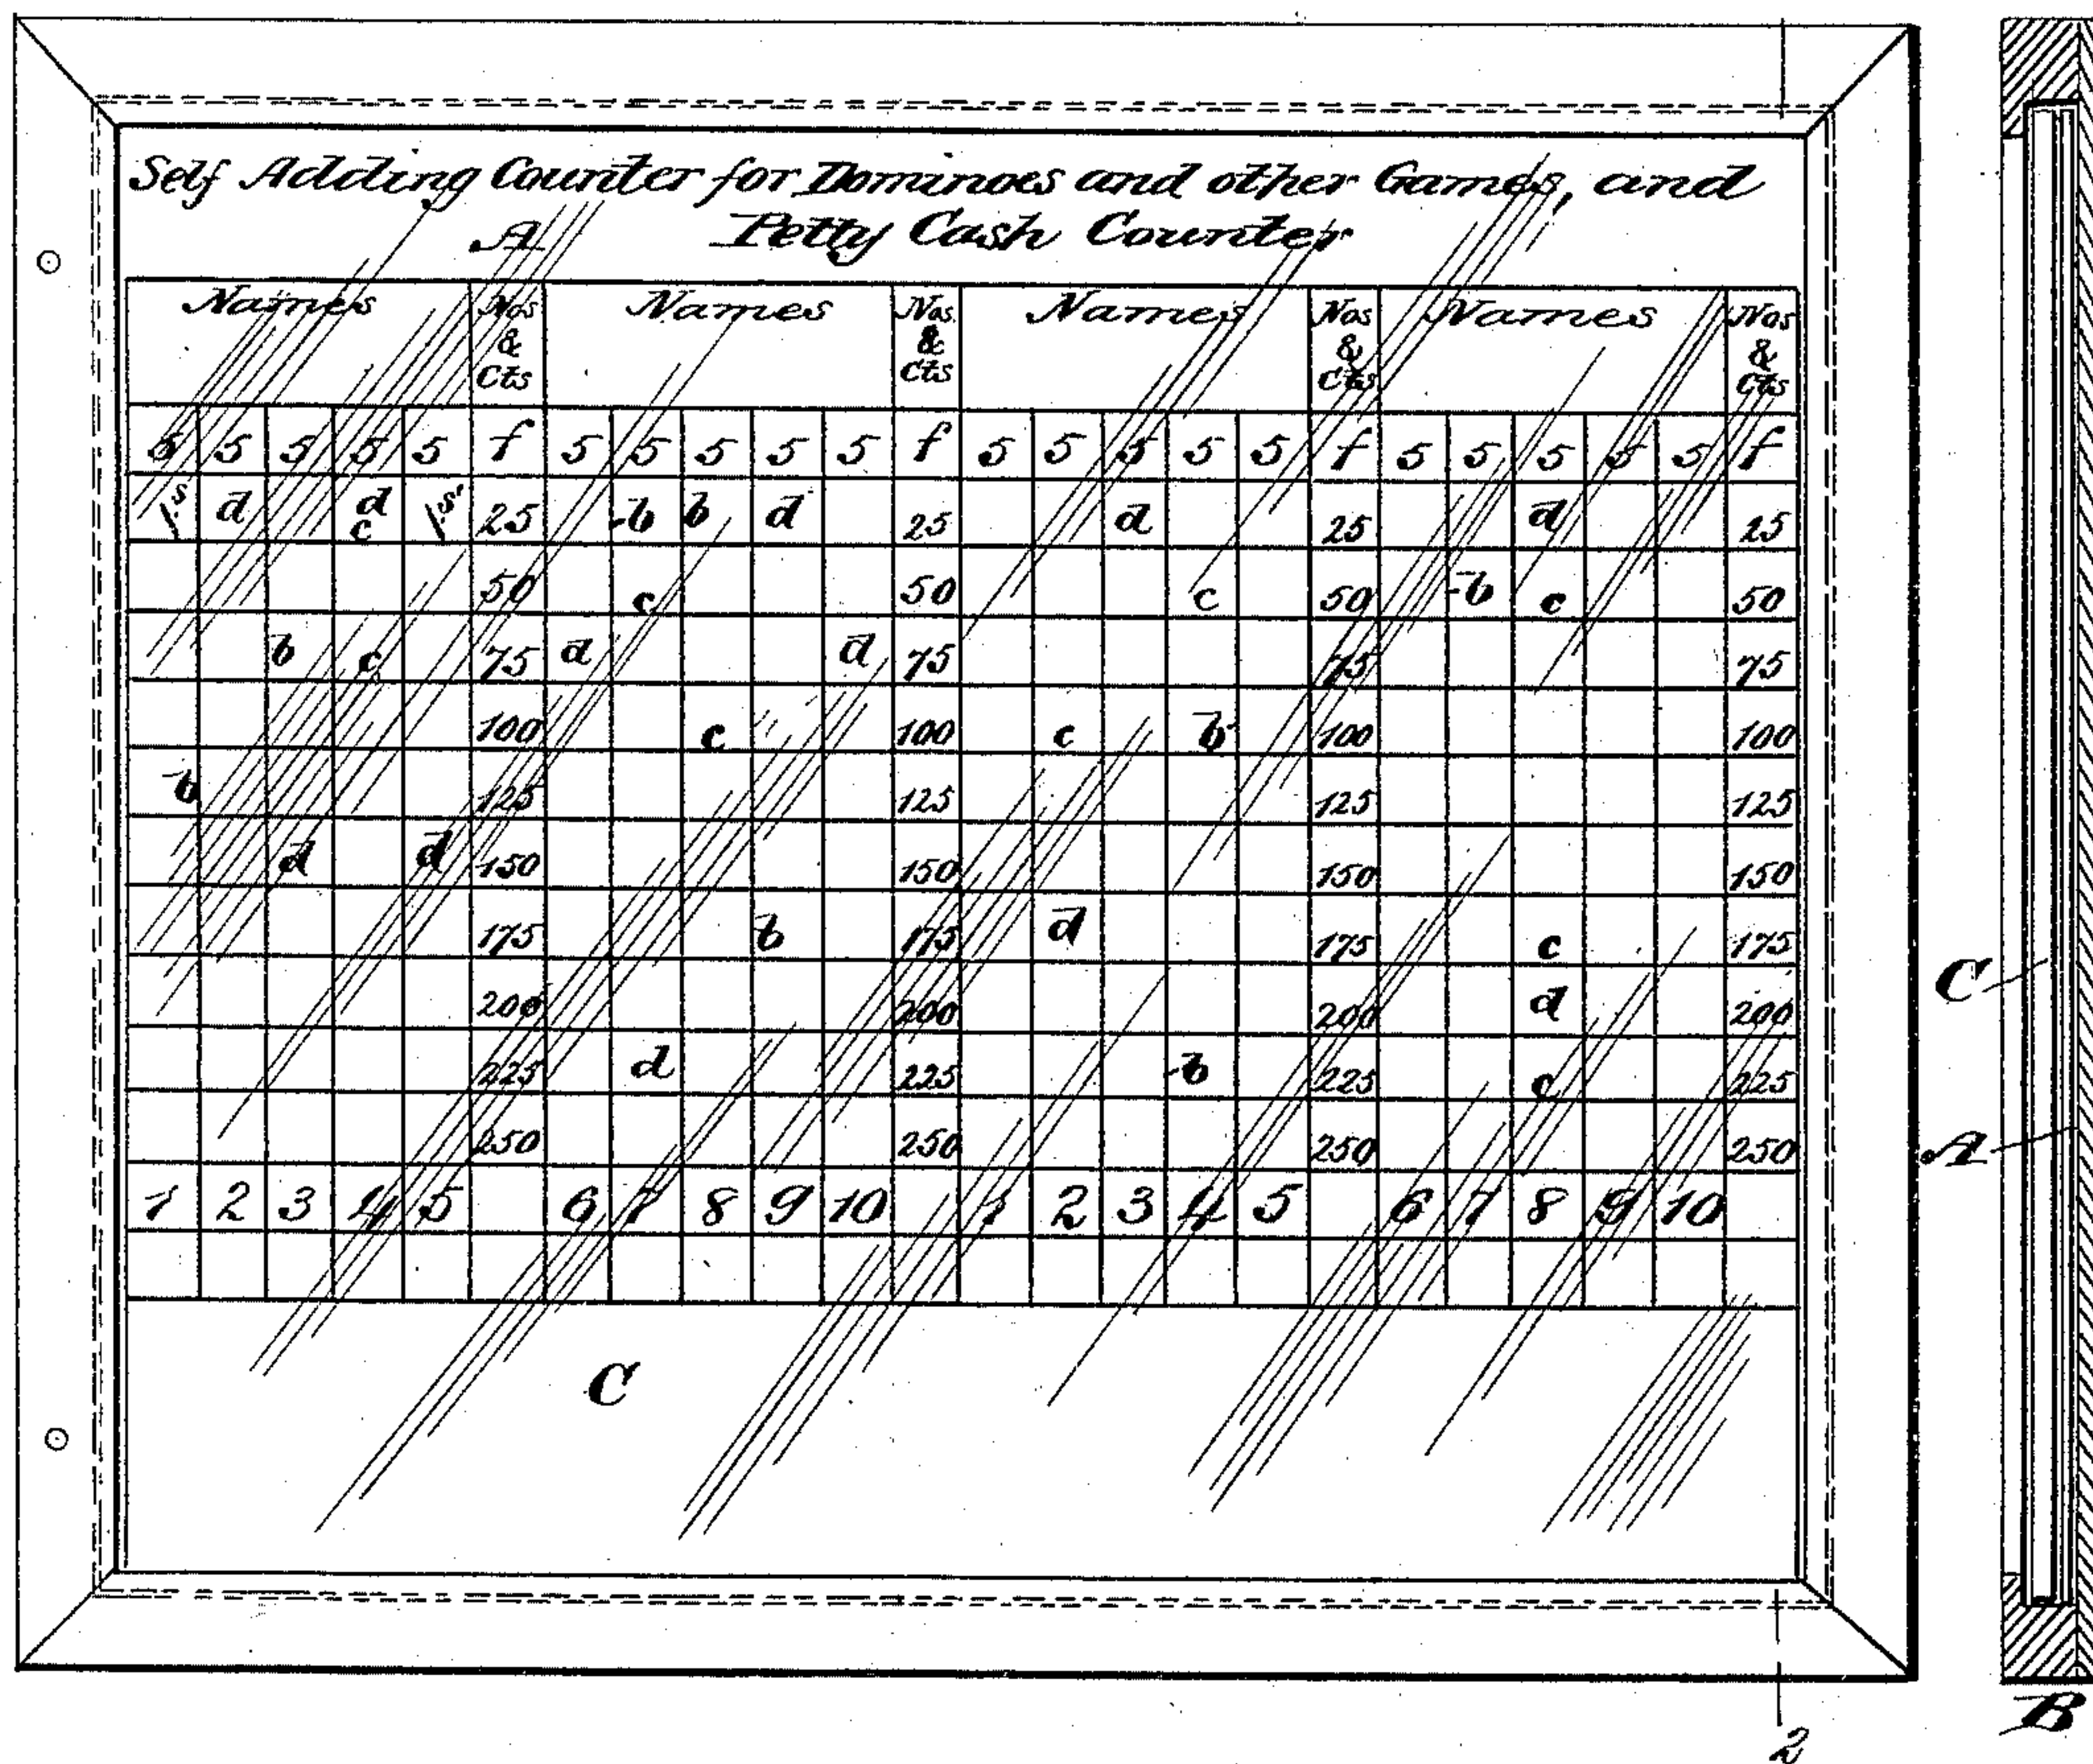 Self Adding Counter for Dominoes and other Games, and
A Petty Cash Counter
Names Nos & Cts Names Nos & Cts Names Nos & Cts Names Nos & Cts
5 5 5 5 5 f 5 5 5 5 5 f 5 5 5 5 5 f 5 5 5 5 5 f
s d d c s' 25 b b d 25 d 25 d 25
50 c 50 c 50 b c 50
b c 75 d d 75 75 75
100 c 100 c b 100 100
b 125 125 125 125
d d 150 150 150 150
175 b 175 d 175 c 175
200 200 200 d 200
225 d 225 b 225 c 225
250 250 250 250
1 2 3 4 5 6 7 8 9 10 1 2 3 4 5 6 7 8 9 10
C
C
A
B
2